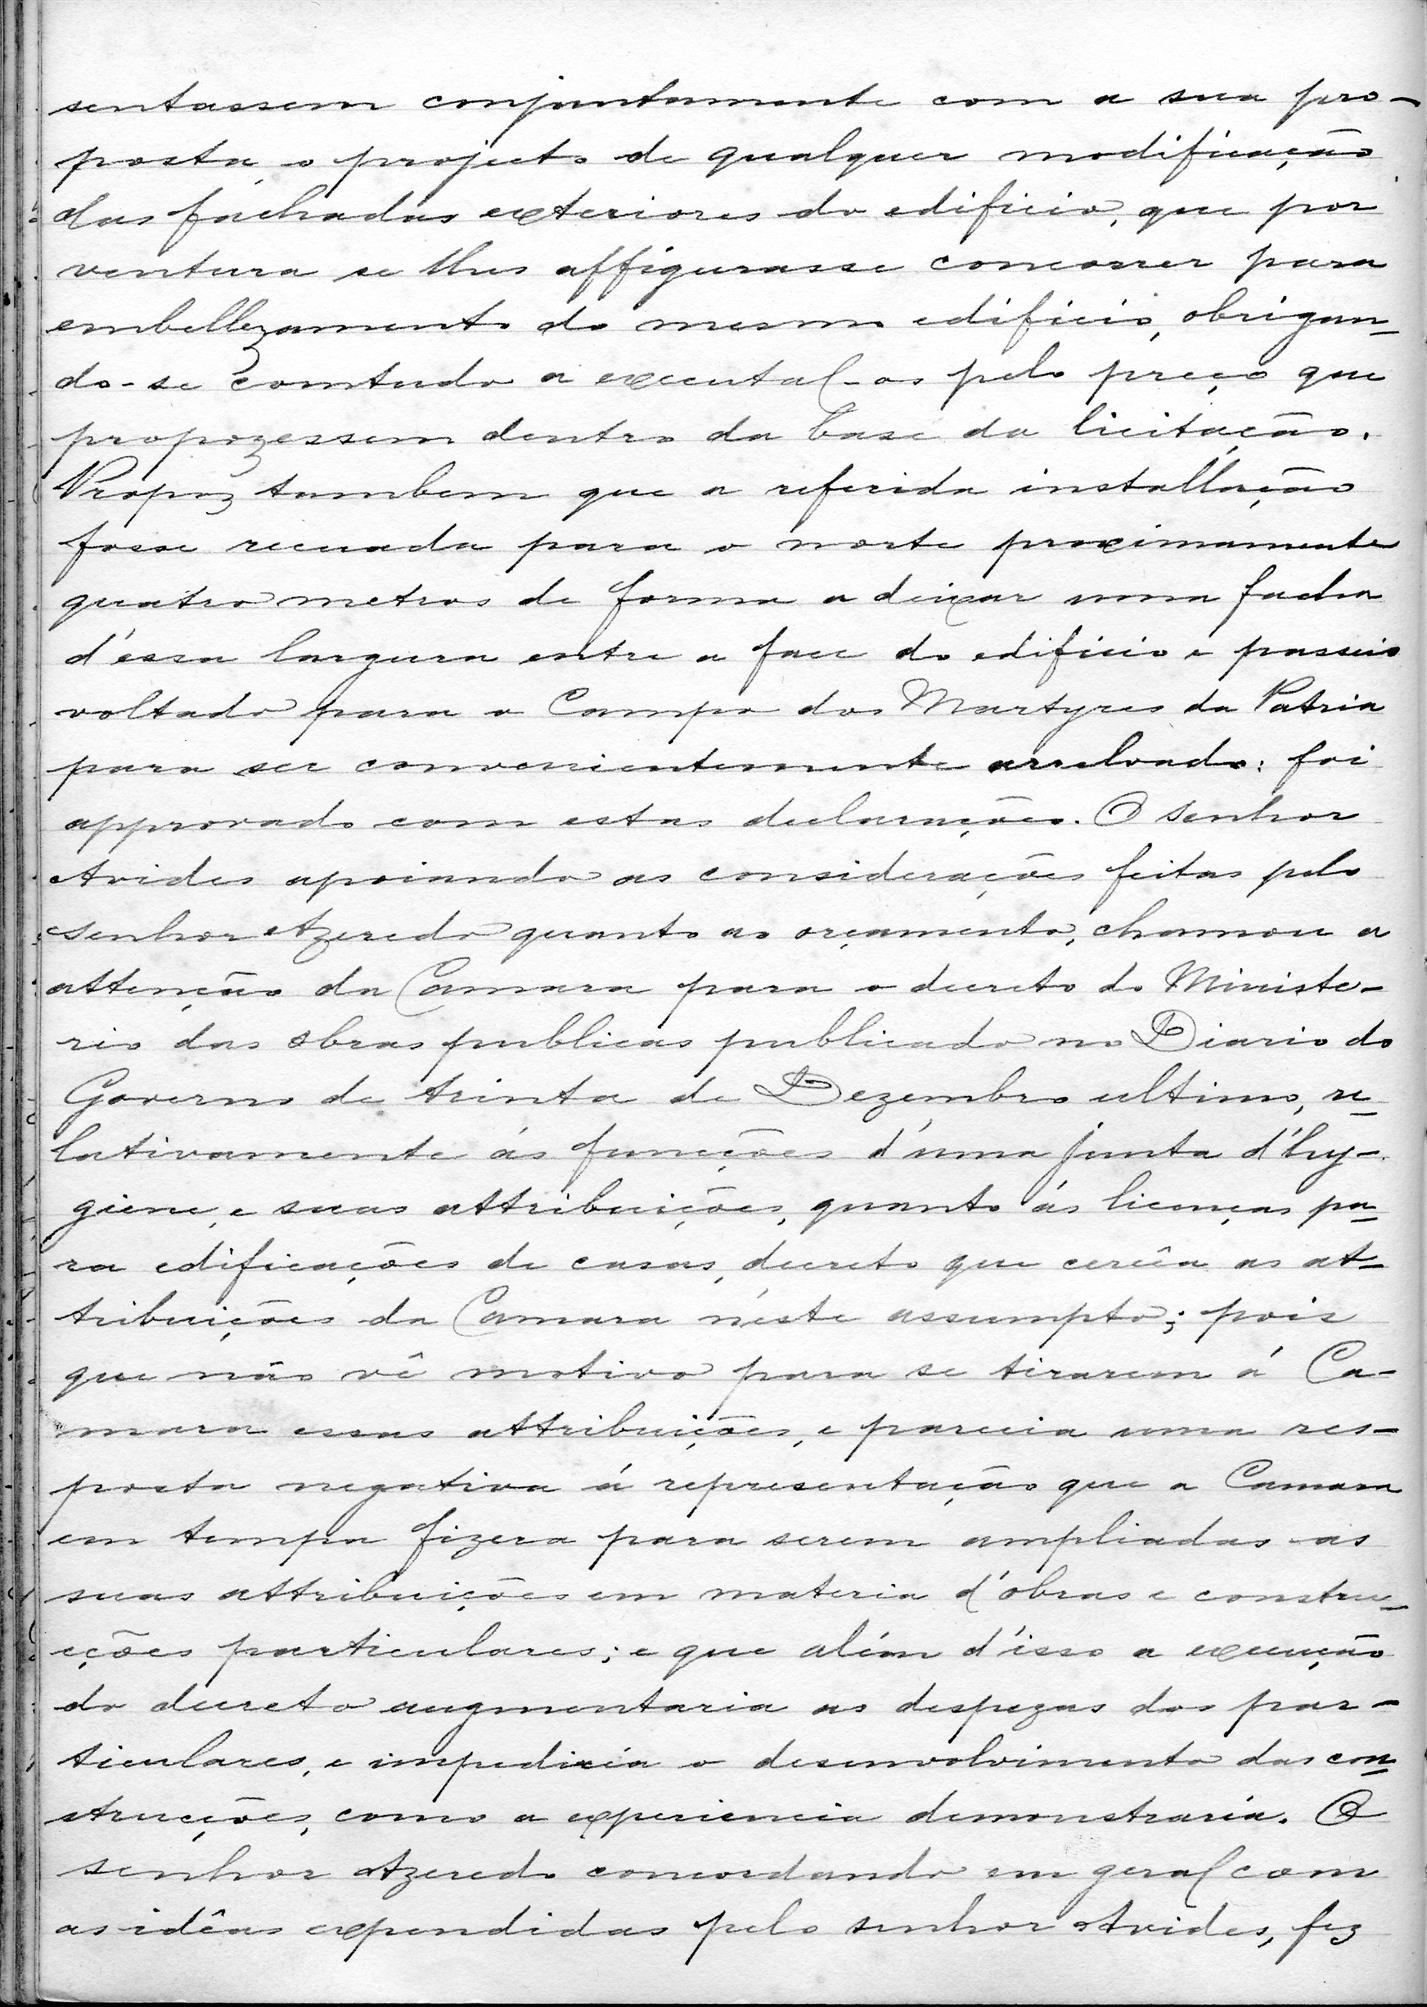 sentassem conjuntamente com a sua pro-
posta, o projecto de qualquer modificação
das fachadas exteriores do edificio, que por
ventura se lhes affigurasse concorrer para
embellezamento do mesmo edificio, obrigan-
do-se comtudo a executal-os pelo preço que
propozessem dentro da base da licitação.
Propoz tambem que a referida installação
fosse recuada para o norte proximamente
quatro metros de forma a deixar uma facha
d'essa largura entre a face do edificio e passeio
voltado para o Campo dos Martyres da Patria
para ser convenientemente arrelvado: foi
approvado com estas declarações. O senhor
Avides apoiando as considerações feitas pelo
senhor Azeredo quanto ao orçamento, chamou a
attenção da Camara para o decreto do Ministe-
rio das obras publicas publicado no Diario do
Governo de trinta de Dezembro ultimo, re-
lativamente ás funcções d'uma junta d'hy-
giene, e suas attribuições, quanto ás licenças pa-
ra edificações de casas, decreto que cercêa as at-
tribuições da Camara n'este assumpto; pois
que não vê motivo para se tirarem á Ca-
mara essas attribuições, e parecia uma res-
posta negativa á representação que a Camara
em tempo fizera para serem ampliadas as
suas attribuições em materia d'obras e constru-
cções particulares; e que além d'isso a execução
do decreto augmentaria as despezas dos par-
ticulares, e impediria o desenvolvimento das con-
strucções, como a experiencia demonstraria. O
senhor Azeredo concordando em geral com
as idêas expendidas pelo senhor Avides, fez